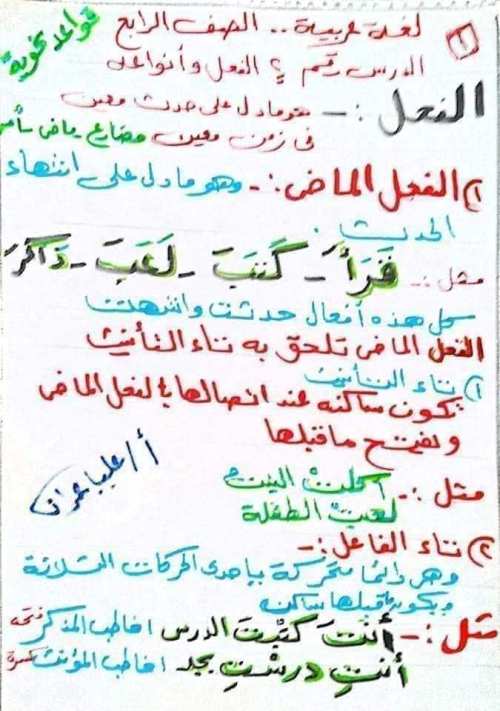 قواعد نحوية
١
لغة عربية .. الصف الرابع
الدرس رقم ٢ الفعل وأنواعه
الفعل :- هو ما دل على حدث معين
فى زمن معين مضارع ماضى أمر
١) الفعل الماضى :- وهو ما دل على انتهاء
الحدث .
مثل :- قَرَأَ - كَتَبَ - لَعَبَ - ذَاكَرَ
كل هذه أفعال حدثت وانتهت
الفعل الماضى تلحق به تاء التأنيث
١) تاء التأنيث
تكون ساكنه عند اتصالها بالفعل الماضى
ويفتح ما قبلها
مثل :- أكلتْ البنت
لعبتْ الطفلة
أ/علياء عمران
٢) تاء الفاعل :-
وهى دائما متحركة بإحدى الحركات الثلاثة
ويكون ما قبلها ساكن
مثل :- أنتَ كتبْتَ الدرس اخاطب المذكر فتحه
أنتِ درسْتِ بجد اخاطب المؤنث كسرة